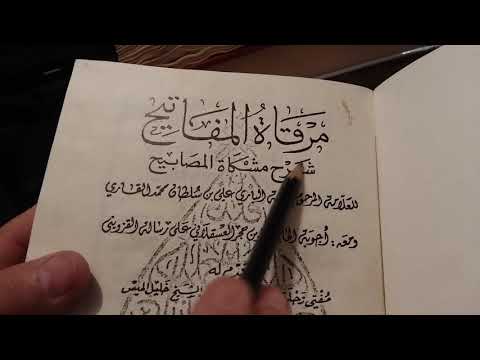 مرقاة المفاتيح
شرح مشكاة المصابيح
للعلامة البَاري علي بن سُلطان محمد القاري
ومعه: أجوبة بن حجر العسقلاني عَلى رسَالة القزويني
مُفتي خليل الميس